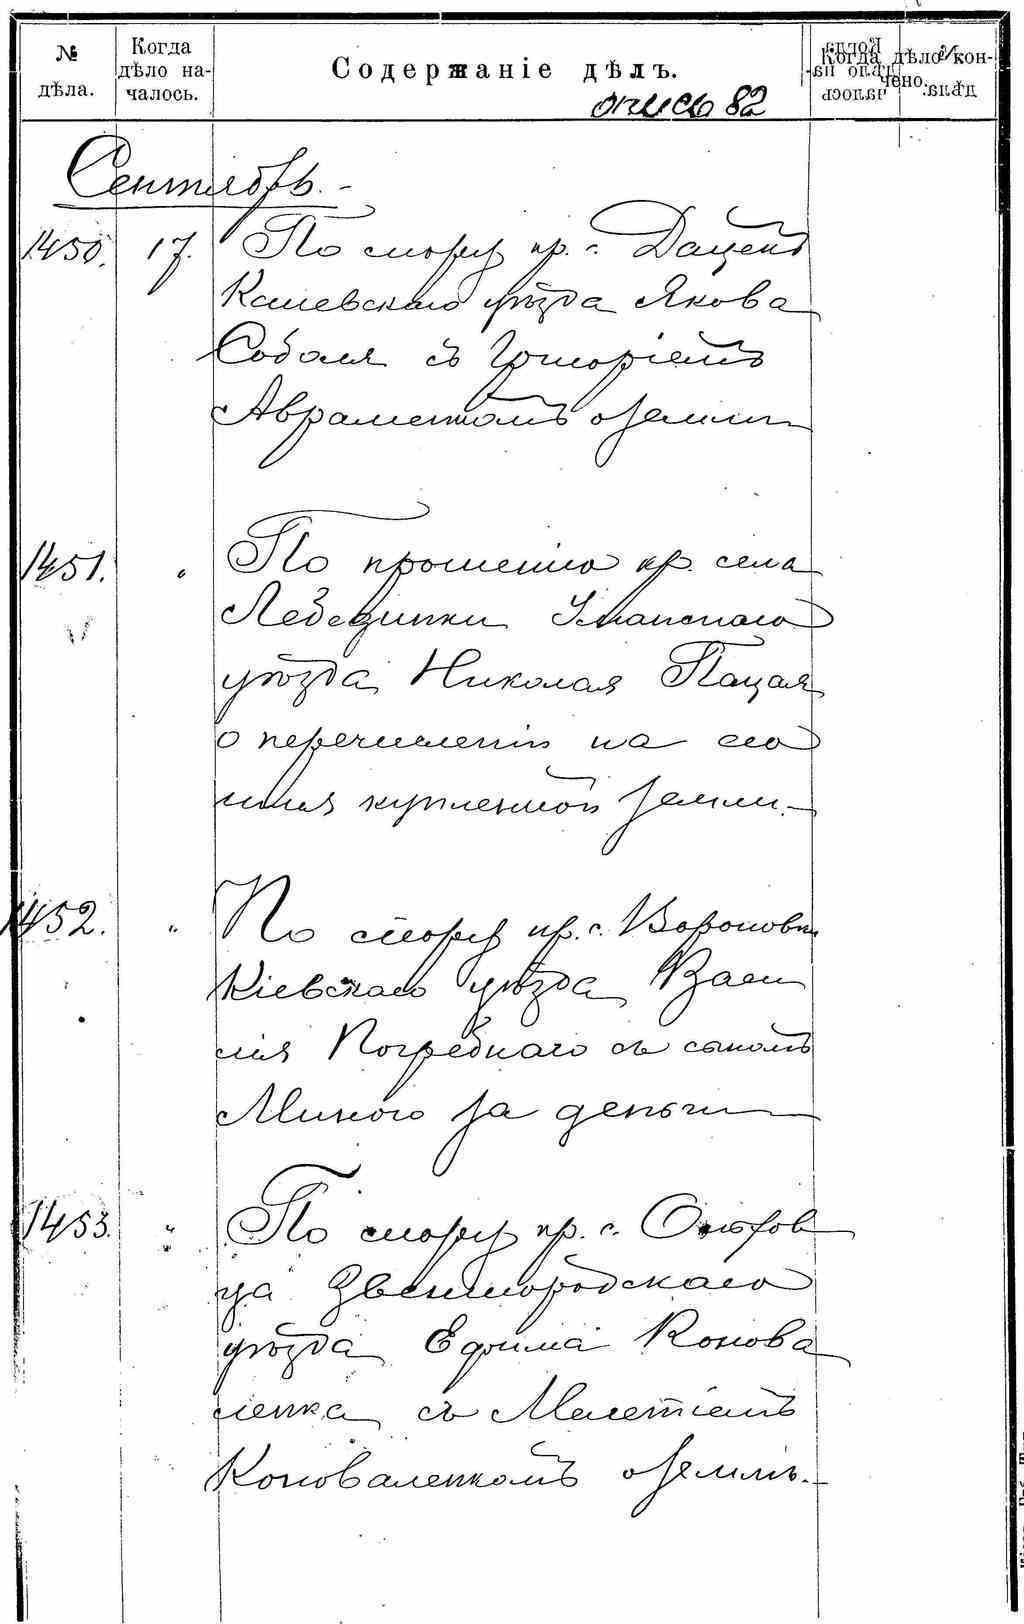 № дѣла.
Когда дѣло началось.
Содержаніе дѣлъ.
Когда дѣло кончено.
опись 82
Сентябрь.
1450. 17. По спору кр. с. Дацекъ
Каневскаго уѣзда Якова
Соболя съ Григоріемъ
Авраменкомъ о землѣ
1451. " По прошенію кр. села
Лебединки Уманскаго
уѣзда Николая Пацая
о перечисленіи на его
имя купленной земли.
1452. " По спору кр. с. Вороновки
Кіевскаго уѣзда Васи
лія Погребнаго съ сыномъ
Миною за деньги
1453. " По спору кр. с.
ца Звенигородскаго
уѣзда Ефима Конова
ленка съ Мелетіемъ
Коноваленкомъ о землѣ.